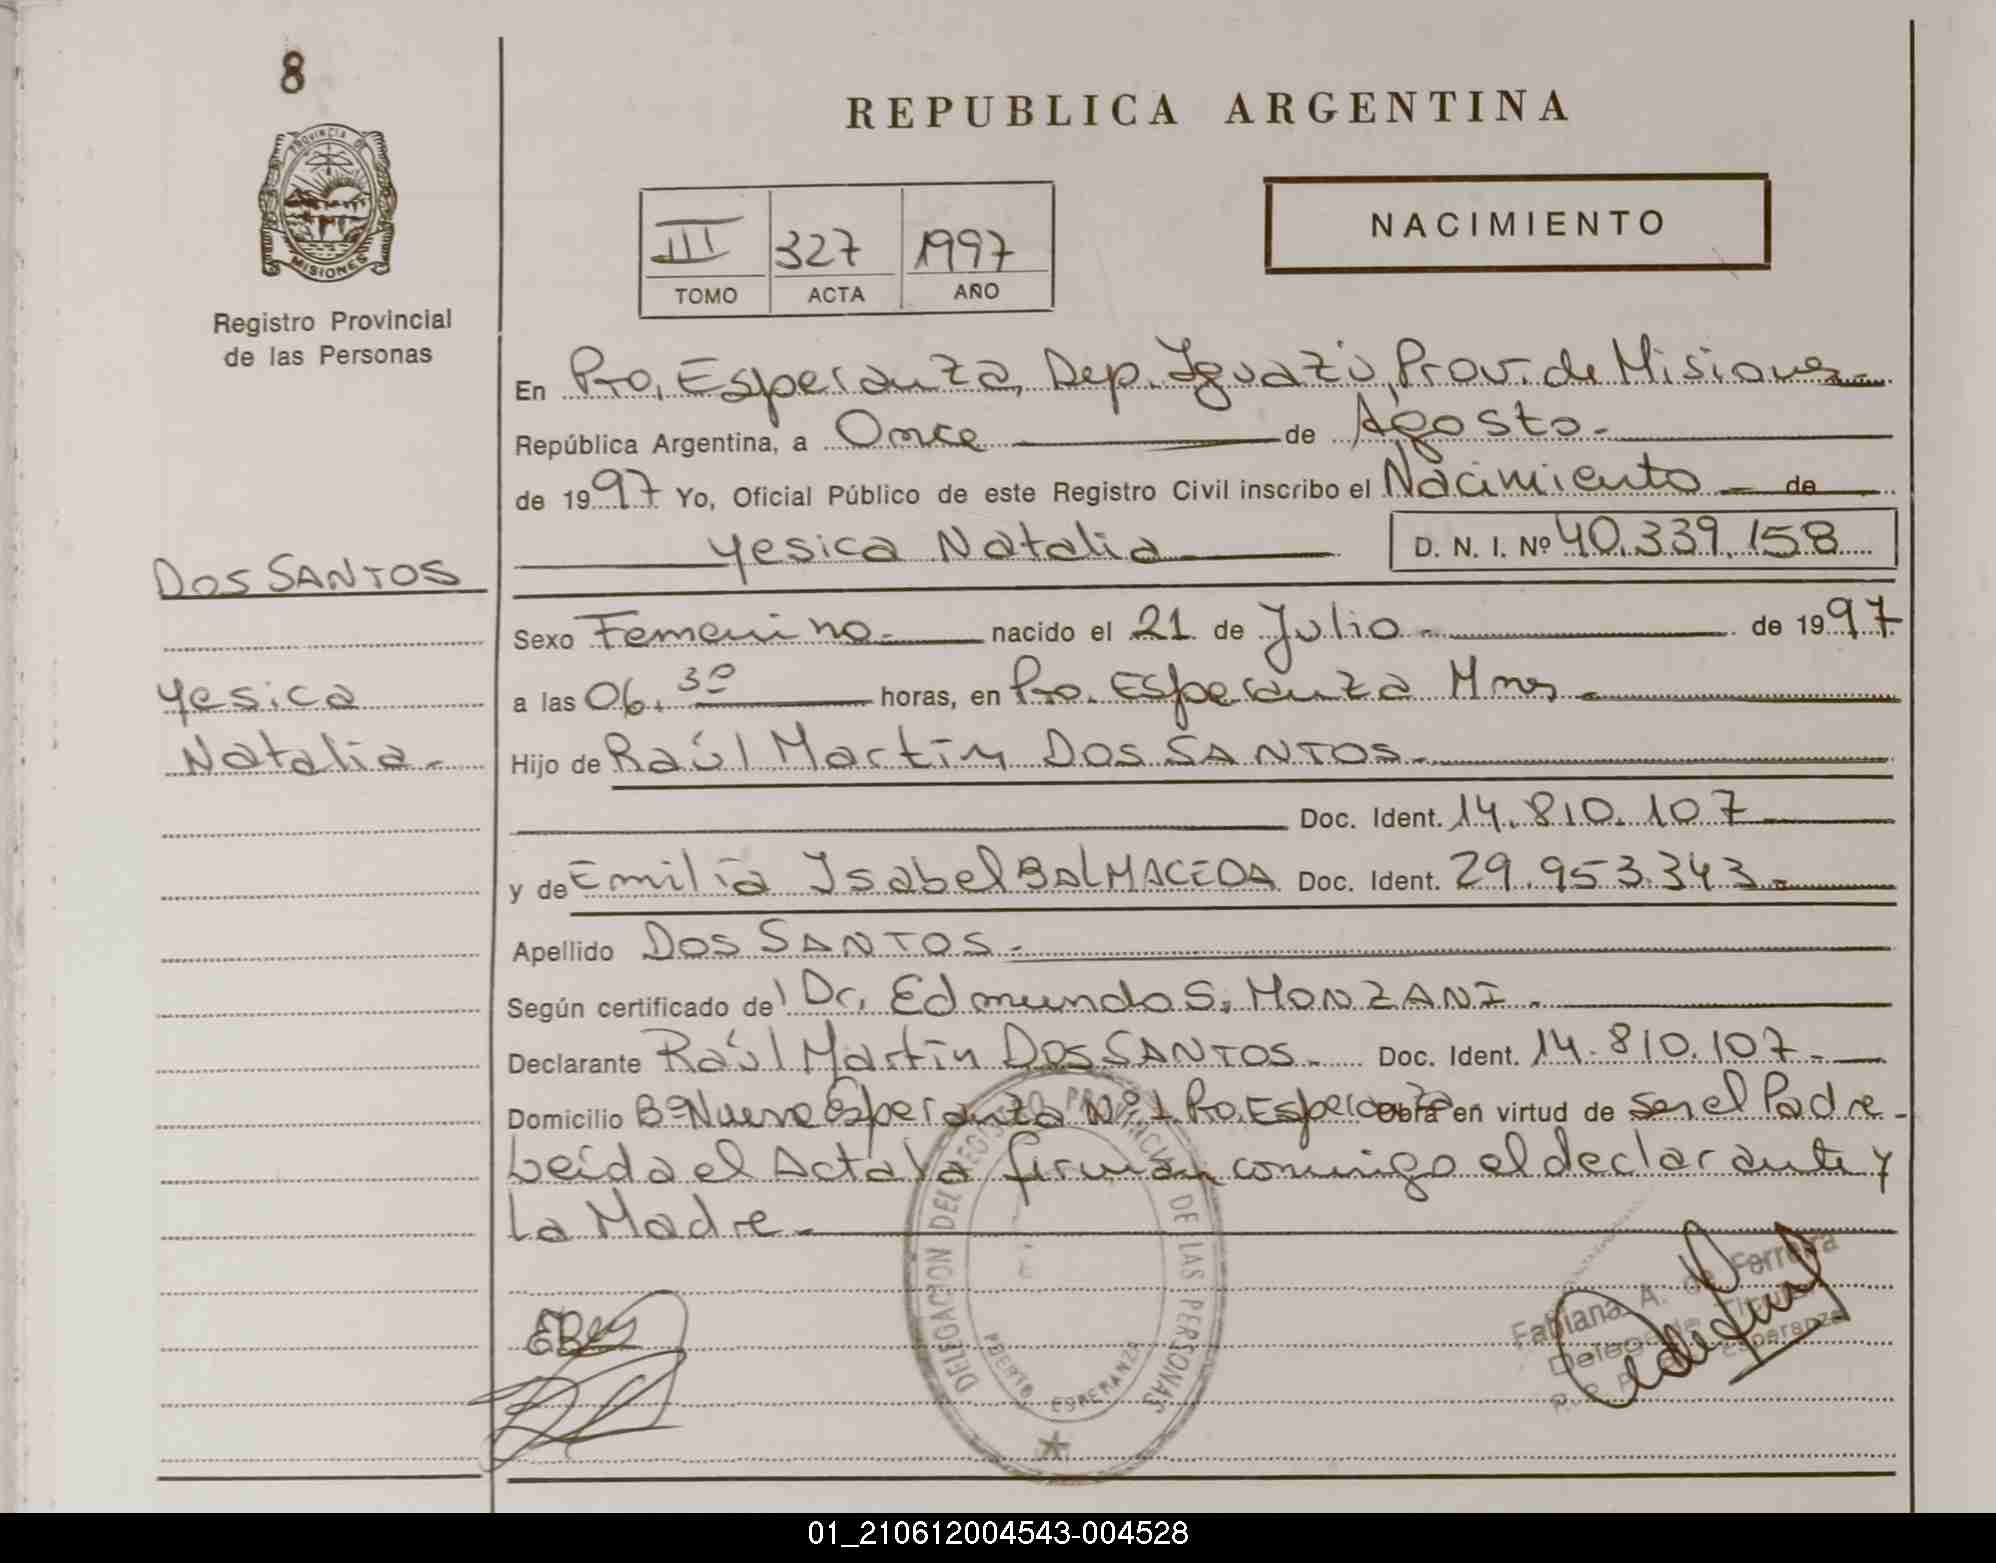 8
PROVINCIA DE
MISIONES
Registro Provincial
de las Personas
REPUBLICA ARGENTINA
III 327 1997
TOMO ACTA AÑO
NACIMIENTO
En Pto. Esperanza, Dep. Iguazú, Prov. de Misiones-
República Argentina, a Once de Agosto.-
de 1997 Yo, Oficial Público de este Registro Civil inscribo el Nacimiento - de
Yesica Natalia D. N. I. Nº 40.339.158
DOS SANTOS
Yesica
Natalia.-
Sexo Femenino.- nacido el 21 de Julio.- de 1997
a las 06.30 horas, en Pto. Esperanza Mnes.-
Hijo de Raúl Martín DOS SANTOS.-
Doc. Ident. 14.810.107
y de Emilia Isabel BALMACEDA Doc. Ident. 29.953.343.-
Apellido DOS SANTOS.-
Según certificado del Dr. Edmundo S. MONZANI.-
Declarante Raúl Martín DOS SANTOS.- Doc. Ident. 14.810.107.-
Domicilio Bº Nueva Esperanza Nº 1 Pto. Esperanza obra en virtud de ser el Padre.-
Leída el Acta la firman conmigo el declarante y
La Madre.-
DELEGACION DEL REGISTRO PROVINCIAL DE LAS PERSONAS
PUERTO ESPERANZA
Fabiana A. de Ferreira
Delegada Titular
Esperanza
01_210612004543-004528